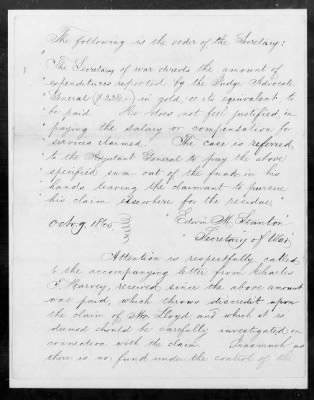 The following is the order of the Secretary:
"The Secretary of war directs the amount of
" expenditures reported by the Judge Advocate
" General in gold, or its equivalent to
" be paid. He does not feel justified in
" paying the salary or compensation for
" services claimed. The case is referred
" to the Adjutant General to pay the above
" specified sum out of the fund in his
" hands leaving the claimant to pursue
" his claim elsewhere for the residue"
"Edwin M. Stanton
Secretary of War
Attention is respectfully called
to the accompanying letter from Charles
F. Harvey, received since the above amount
was paid, which throws discredit upon
the claim of Mr. Lloyd and which it is
deemed should be carefully investigated in
connection with the claim. Inasmuch as
there is no fund under the control of the